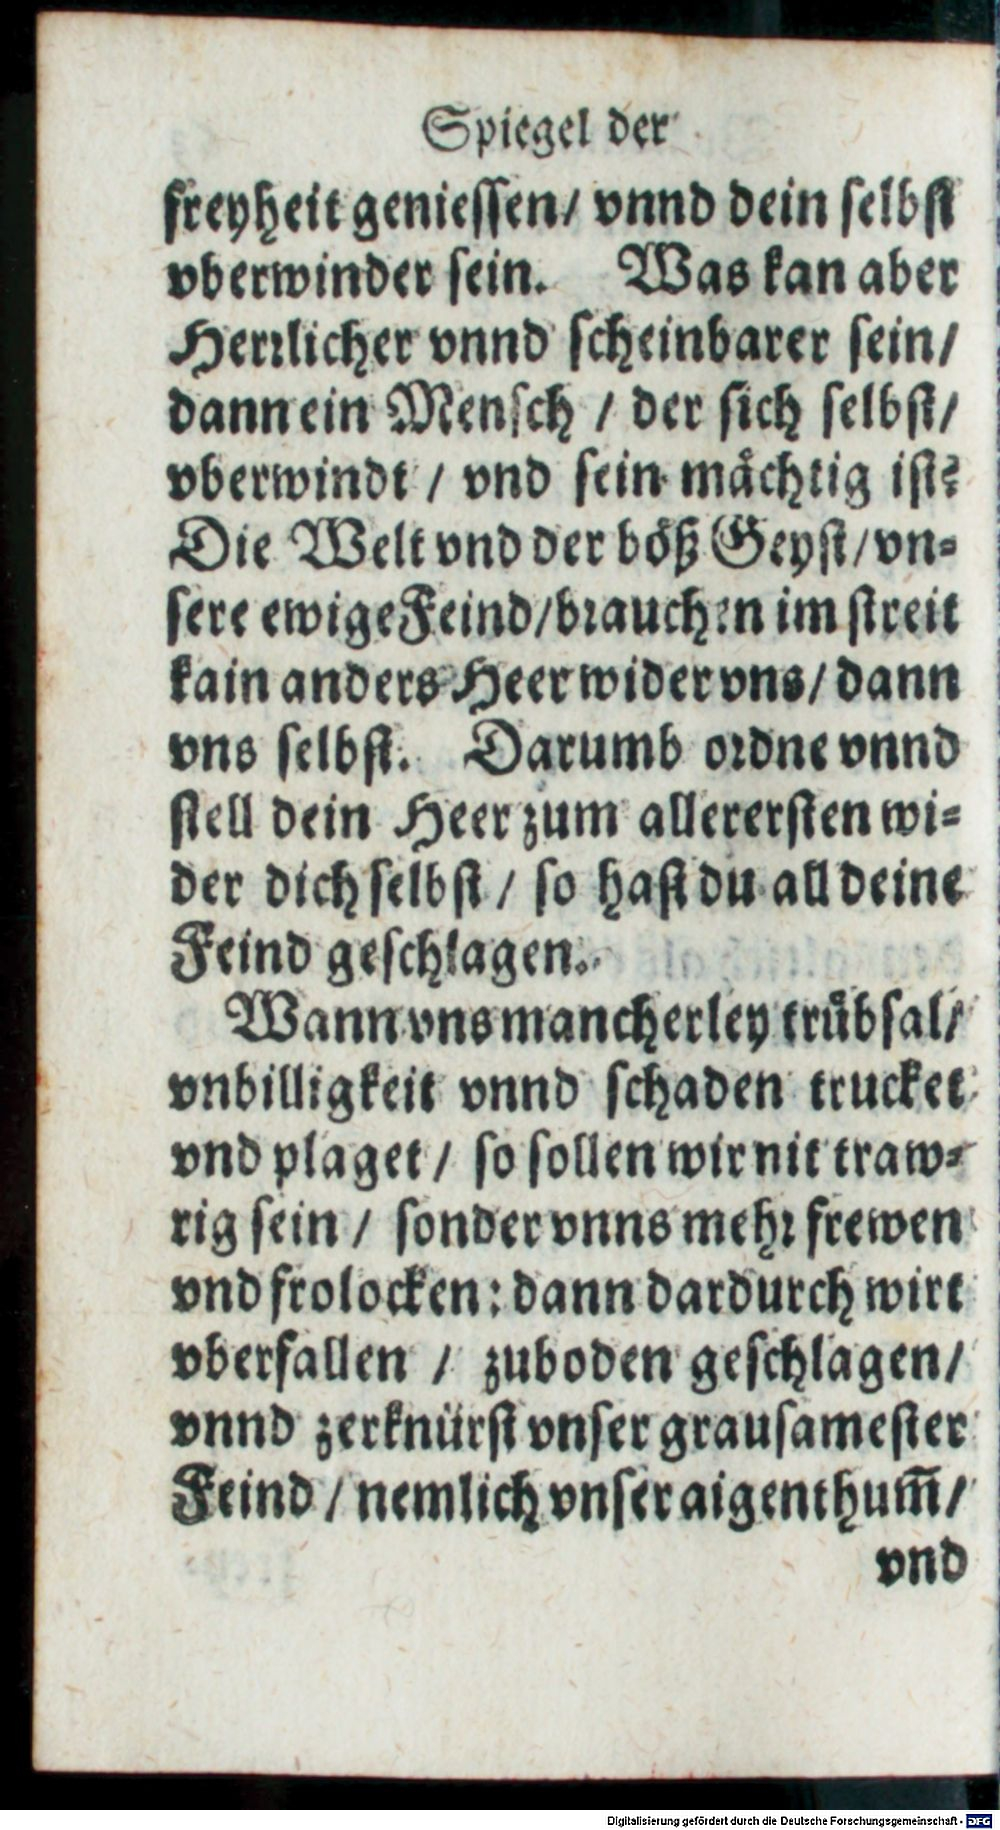 Spiegel der
freyheit geniessen/ vnnd dein selbst
vberwinder sein. Was kan aber
Herrlicher vnnd scheinbarer sein/
dann ein Mensch / der sich selbst/
vberwindt / vnd sein mächtig ist?
Die Welt vnd der böß Geyst/ vn=
sere ewige Feind/brauchen im streit
kain anders Heer wider vns/ dann
vns selbst. Darumb ordne vnnd
stell dein Heer zum allerersten wi=
der dich selbst / so hast du all deine
Feind geschlagen.
Wann vns mancherley trübsal/
vnbilligkeit vnnd schaden trucket
vnd plaget / so sollen wir nit traw=
rig sein / sonder vnns mehr frewen
vnd frolocken: dann dardurch wirt
vberfallen / zuboden geschlagen/
vnnd zerknürst vnser grausamester
Feind / nemlich vnser aigenthum̃/
vnd
Digitalisierung gefördert durch die Deutsche Forschungsgemeinschaft - DFG